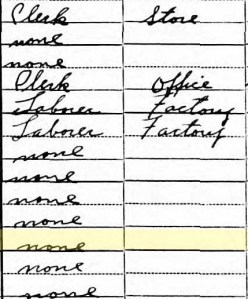 Clerk Store
none
none
Clerk Office
Laborer Factory
Laborer Factory
none
none
none
none
none
none
none